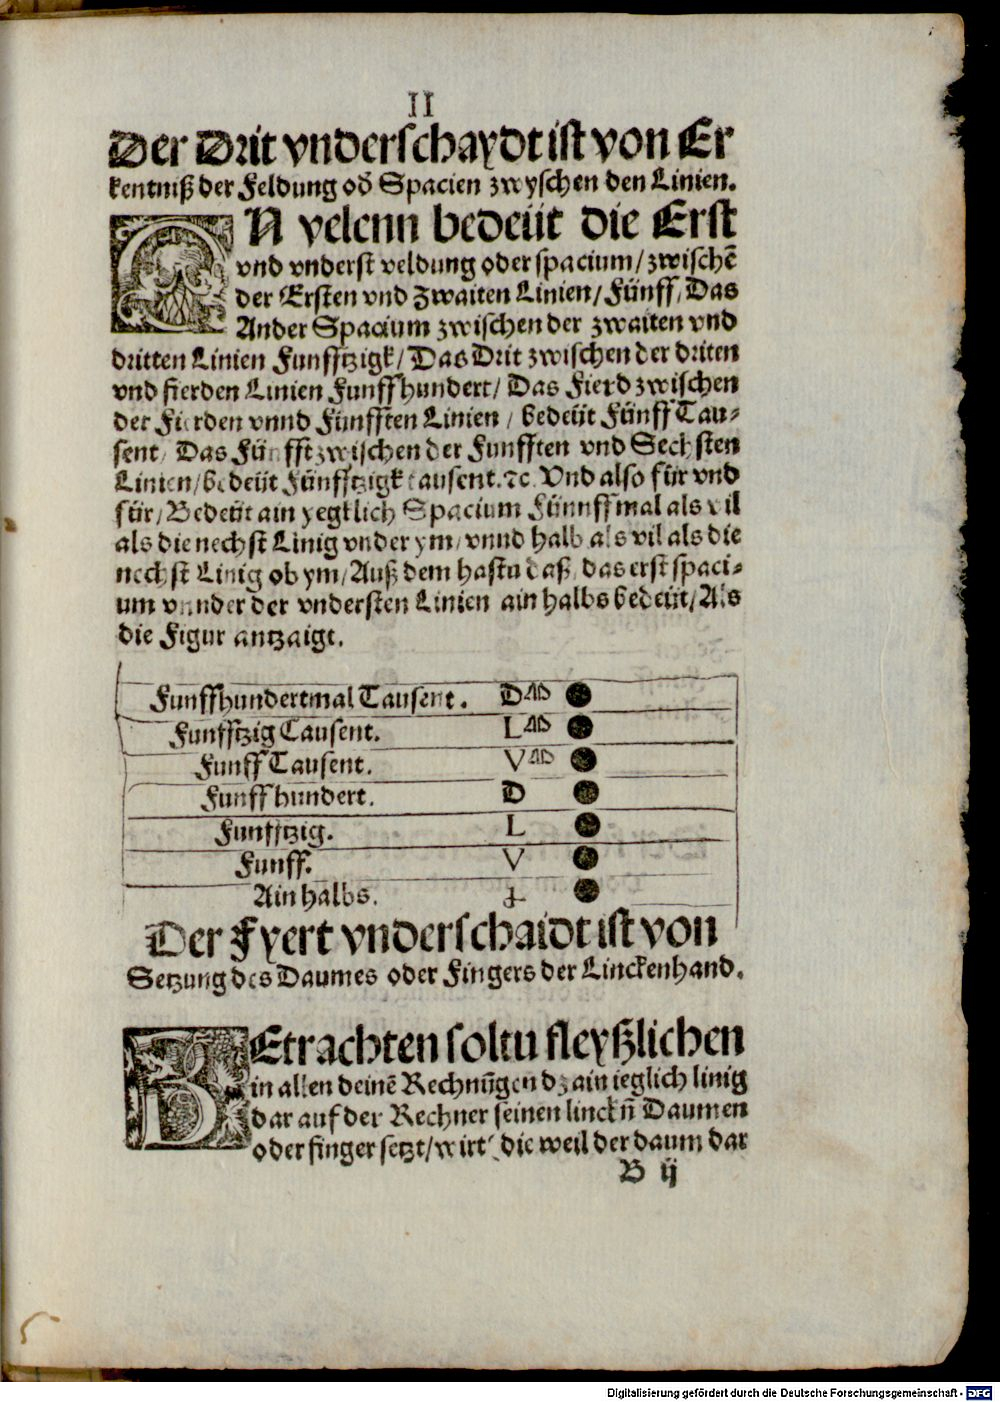 II
Der Drit vnderschaydt ist von Er
kentniß der Feldung od̄ Spacien zwyschen den Linien.
EN velenn bedeüt die Erst
vnd vnderst veldung oder spacium/ zwischē
der Ersten vnd Zwaiten Linien/ Fünff/ Das
Ander Spacium zwischen der zwaiten vnd
dritten Linien Funfftzigk/ Das Drit zwischen der driten
vnd fierden Linien Funffhundert/ Das Fierd zwischen
der Fierden vnnd Fünfften Linien / bedeüt Fünff Tau⸗
sent/ Das Fünfft zwischen der Funfften vnd Sechsten
Linien/ bedeüt Fünfftzigk tausent. ꝛc. Vnd also für vnd
für/ Bedeüt ain yegklich Spacium Fünnffmal als vil
als die nechst Linig vnder ym/ vnnd halb als vil als die
nechst Linig ob ym/ Auß dem hastu daß/ das erst spaci⸗
um vnnder der vndersten Linien ain halbs bedeüt/ Als
die Figur antzaigt.
Funffhundertmal Tausent. D M
Funfftzig Tausent. L M
Funff Tausent. V M
Funffhundert. D
Funfftzig. L
Funff. V
Ain halbs.
Der Fyert vnderschaidt ist von
Setzung des Daumes oder Fingers der Linckenhand.
BEtrachten soltu fleyßlichen
in allen deinē Rechnūgen dz ain ieglich linig
dar auf der Rechner seinen linckn̄ Daumen
oder finger setzt/ wirt die weil der daum dar
B ij
Digitalisierung gefördert durch die Deutsche Forschungsgemeinschaft - DFG